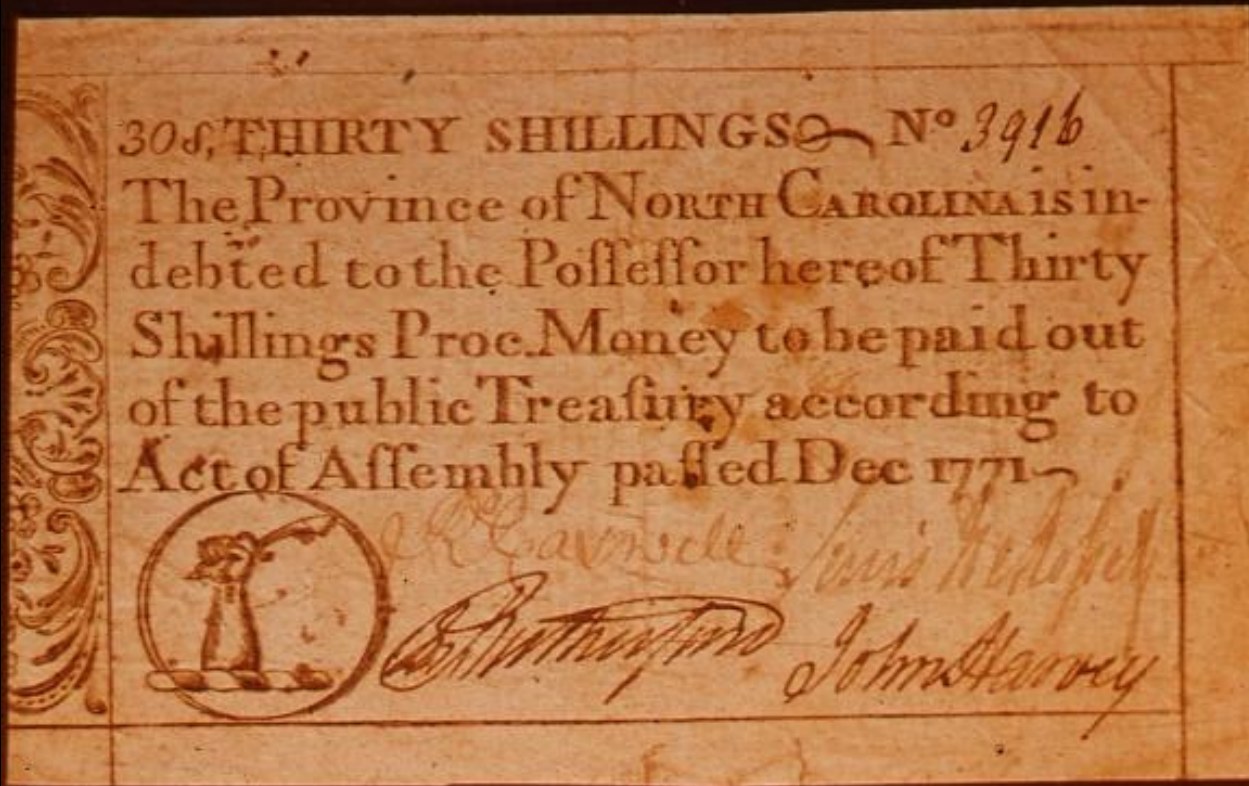 30s, THIRTY SHILLINGS No 3916
The Province of NORTH CAROLINA is in-
debted to the Poſſeſſor hereof Thirty
Shillings Proc. Money to be paid out
of the public Treaſury according to
Act of Aſſembly paſſed Dec 1771
Rd Caswell Lewis
Rutherfurd John Harvey